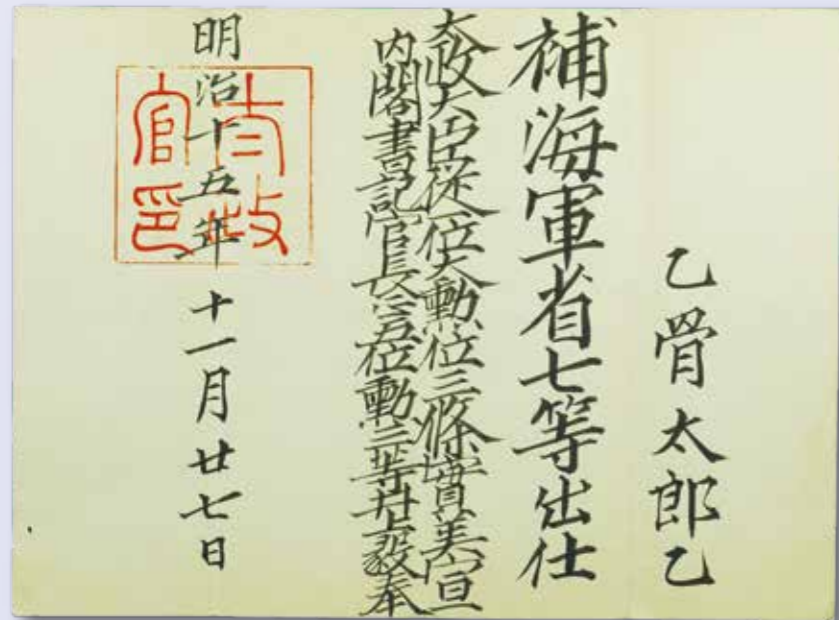 乙骨太郎乙
補海軍省七等出仕
太政大臣従一位大勲位三條實美宣
内閣書記官長従五位勲三等井上毅奉
明治十五年十一月廿七日
太政官印